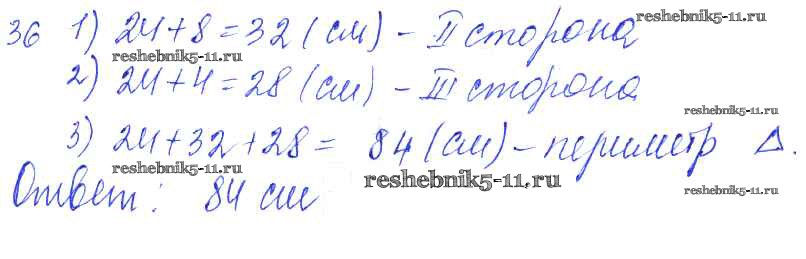 36 1) 24 + 8 = 32 (см) – II сторона
reshebnik5-11.ru
reshebnik5-11.ru
2) 24 + 4 = 28 (см) – III сторона
reshebnik5-11.ru
3) 24 + 32 + 28 = 84 (см) – периметр Δ.
reshebnik5-11.ru
Ответ: 84 см
reshebnik5-11.ru
reshebnik5-11.ru